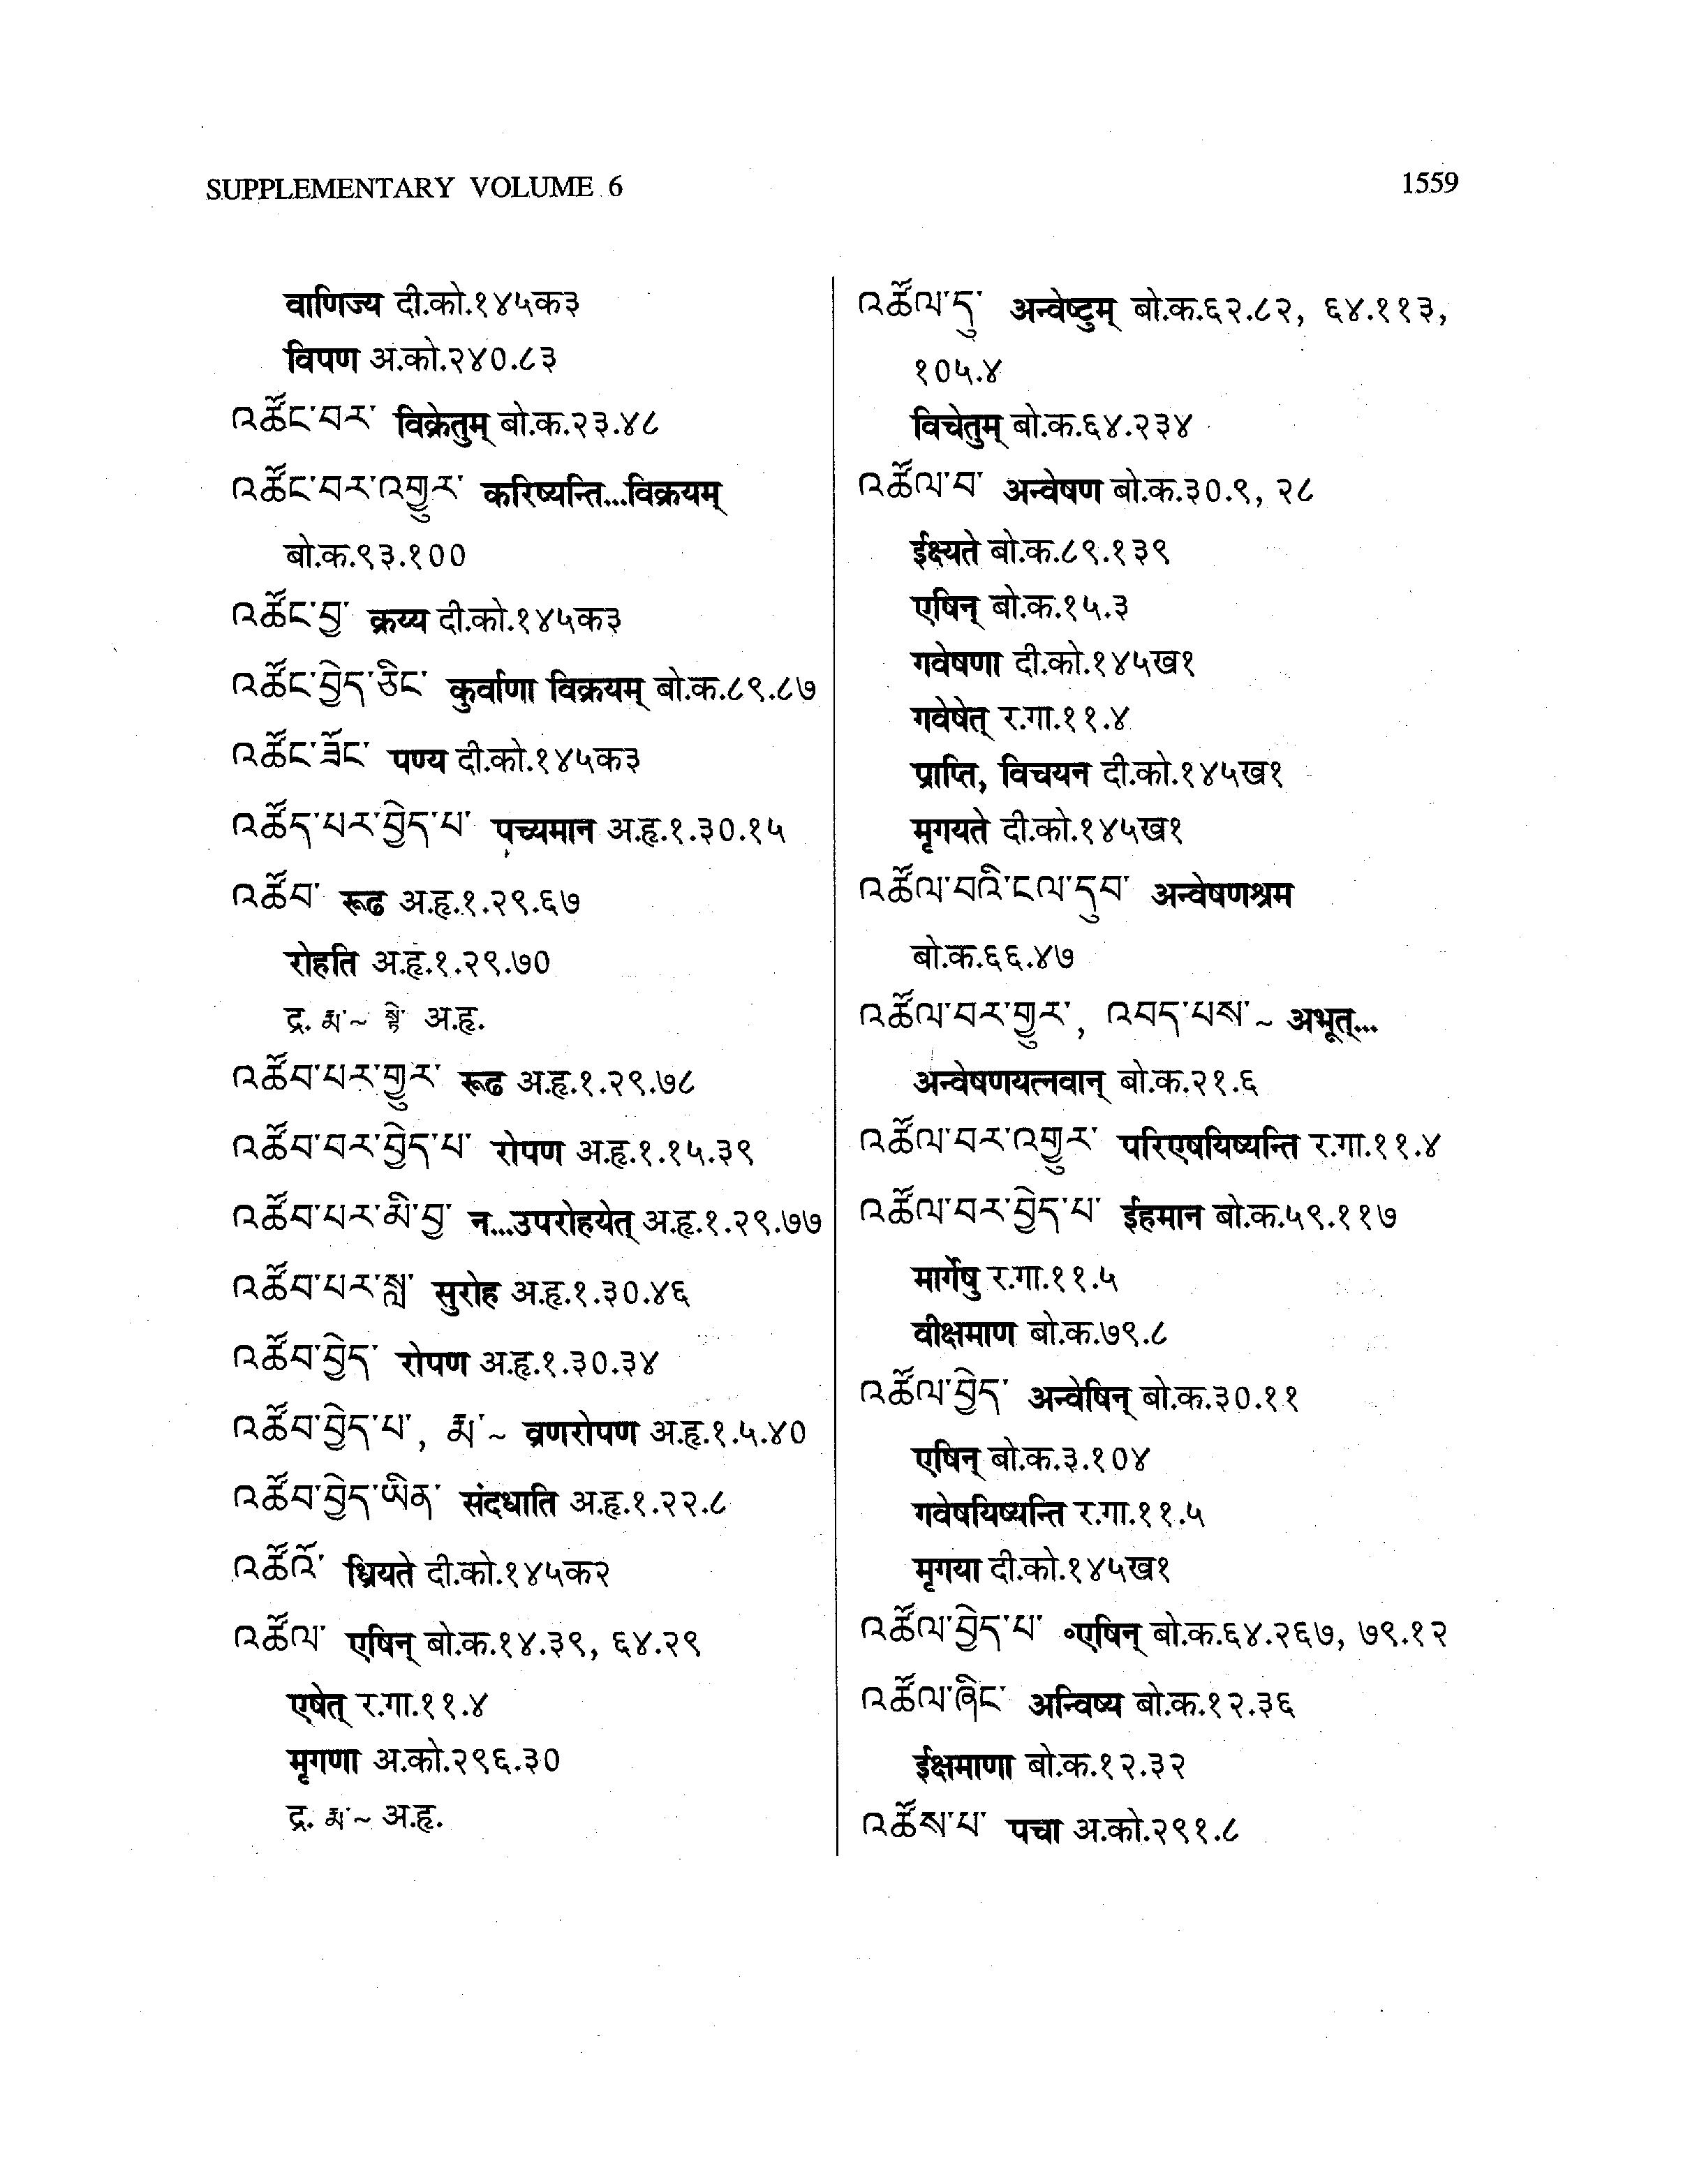 SUPPLEMENTARY VOLUME 6
1559
वाणिज्य दी.को.१४५क३
विपण अ.को.२४०.८३
འཚོང་བར་ विक्रेतुम् बो.क.२३.४८
འཚོང་བར་འགྱུར་ करिष्यन्ति...विक्रयम्
बो.क.९३.१००
འཚོང་བྱ་ क्रय्य दी.को.१४५क३
འཚོང་བྱེད་ཅིང་ कुर्वाणा विक्रयम् बो.क.८९.८७
འཚོང་ཟོང་ पण्य दी.को.१४५क३
འཚོད་པར་བྱེད་པ་ पच्यमान अ.हृ.१.३०.१५
འཚོབ་ रूढ अ.हृ.१.२९.६७
रोहति अ.हृ.१.२९.७०
द्र. རྨ་~ སྟེ་ अ.हृ.
འཚོབ་པར་གྱུར་ रूढ अ.हृ.१.२९.७८
འཚོབ་བར་བྱེད་པ་ रोपण अ.हृ.१.१५.३९
འཚོབ་པར་མི་བྱ་ न...उपरोहयेत् अ.हृ.१.२९.७७
འཚོབ་པར་སླ་ सुरोह अ.हृ.१.३०.४६
འཚོབ་བྱེད་ रोपण अ.हृ.१.३०.३४
འཚོབ་བྱེད་པ་, རྨ་~ व्रणरोपण अ.हृ.१.५.४०
འཚོབ་བྱེད་ཡིན་ संदधाति अ.हृ.१.२२.८
འཚོའོ་ ध्रियते दी.को.१४५क२
འཚོལ་ एषिन् बो.क.१४.३९, ६४.२९
एषेत् र.गा.११.४
मृगणा अ.को.२९६.३०
द्र. རྨ་~ अ.हृ.
འཚོལ་དུ་ अन्वेष्टुम् बो.क.६२.८२, ६४.११३,
१०५.४
विचेतुम् बो.क.६४.२३४
འཚོལ་བ་ अन्वेषण बो.क.३०.९, २८
ईक्ष्यते बो.क.८९.१३९
एषिन् बो.क.१५.३
गवेषणा दी.को.१४५ख१
गवेषेत् र.गा.११.४
प्राप्ति, विचयन दी.को.१४५ख१
मृगयते दी.को.१४५ख१
འཚོལ་བའི་ངལ་དུབ་ अन्वेषणश्रम
बो.क.६६.४७
འཚོལ་བར་གྱུར་, འབད་པས་~ अभूत्...
अन्वेषणयत्नवान् बो.क.२१.६
འཚོལ་བར་འགྱུར་ परिएषयिष्यन्ति र.गा.११.४
འཚོལ་བར་བྱེད་པ་ ईहमान बो.क.५९.११७
मार्गेषु र.गा.११.५
वीक्षमाण बो.क.७९.८
འཚོལ་བྱེད་ अन्वेषिन् बो.क.३०.११
एषिन् बो.क.३.१०४
गवेषयिष्यन्ति र.गा.११.५
मृगया दी.को.१४५ख१
འཚོལ་བྱེད་པ་ ॰एषिन् बो.क.६४.२६७, ७९.१२
འཚོལ་ཞིང་ अन्विष्य बो.क.१२.३६
ईक्षमाणा बो.क.१२.३२
འཚོས་པ་ पचा अ.को.२९१.८